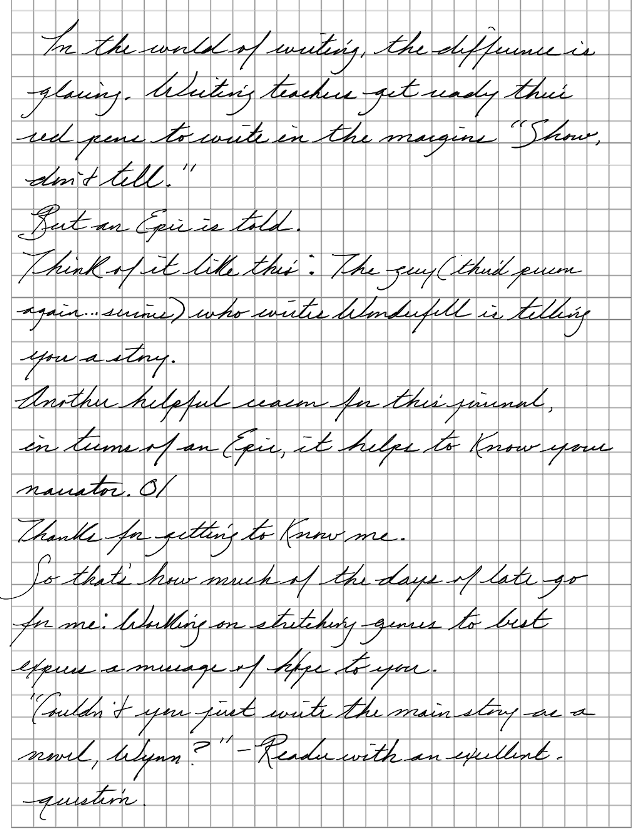 In the world of writing, the difference is
glaring. Writing teachers get ready their
red pens to write in the margins "Show,
don't tell."
But an Epic is told.
Think of it like this: The guy (third person
again... sorry) who writes Wonderfell is telling
you a story.
Another helpful reason for this journal,
in terms of an Epic, it helps to Know your
narrator.
Thanks for getting to Know me.
So that's how much of the days of late go
for me: Working on stretching genres to best
express a message of hope to you.
"Couldn't you just write the main story as a
novel, Wynn?" - Reader with an excellent
question.